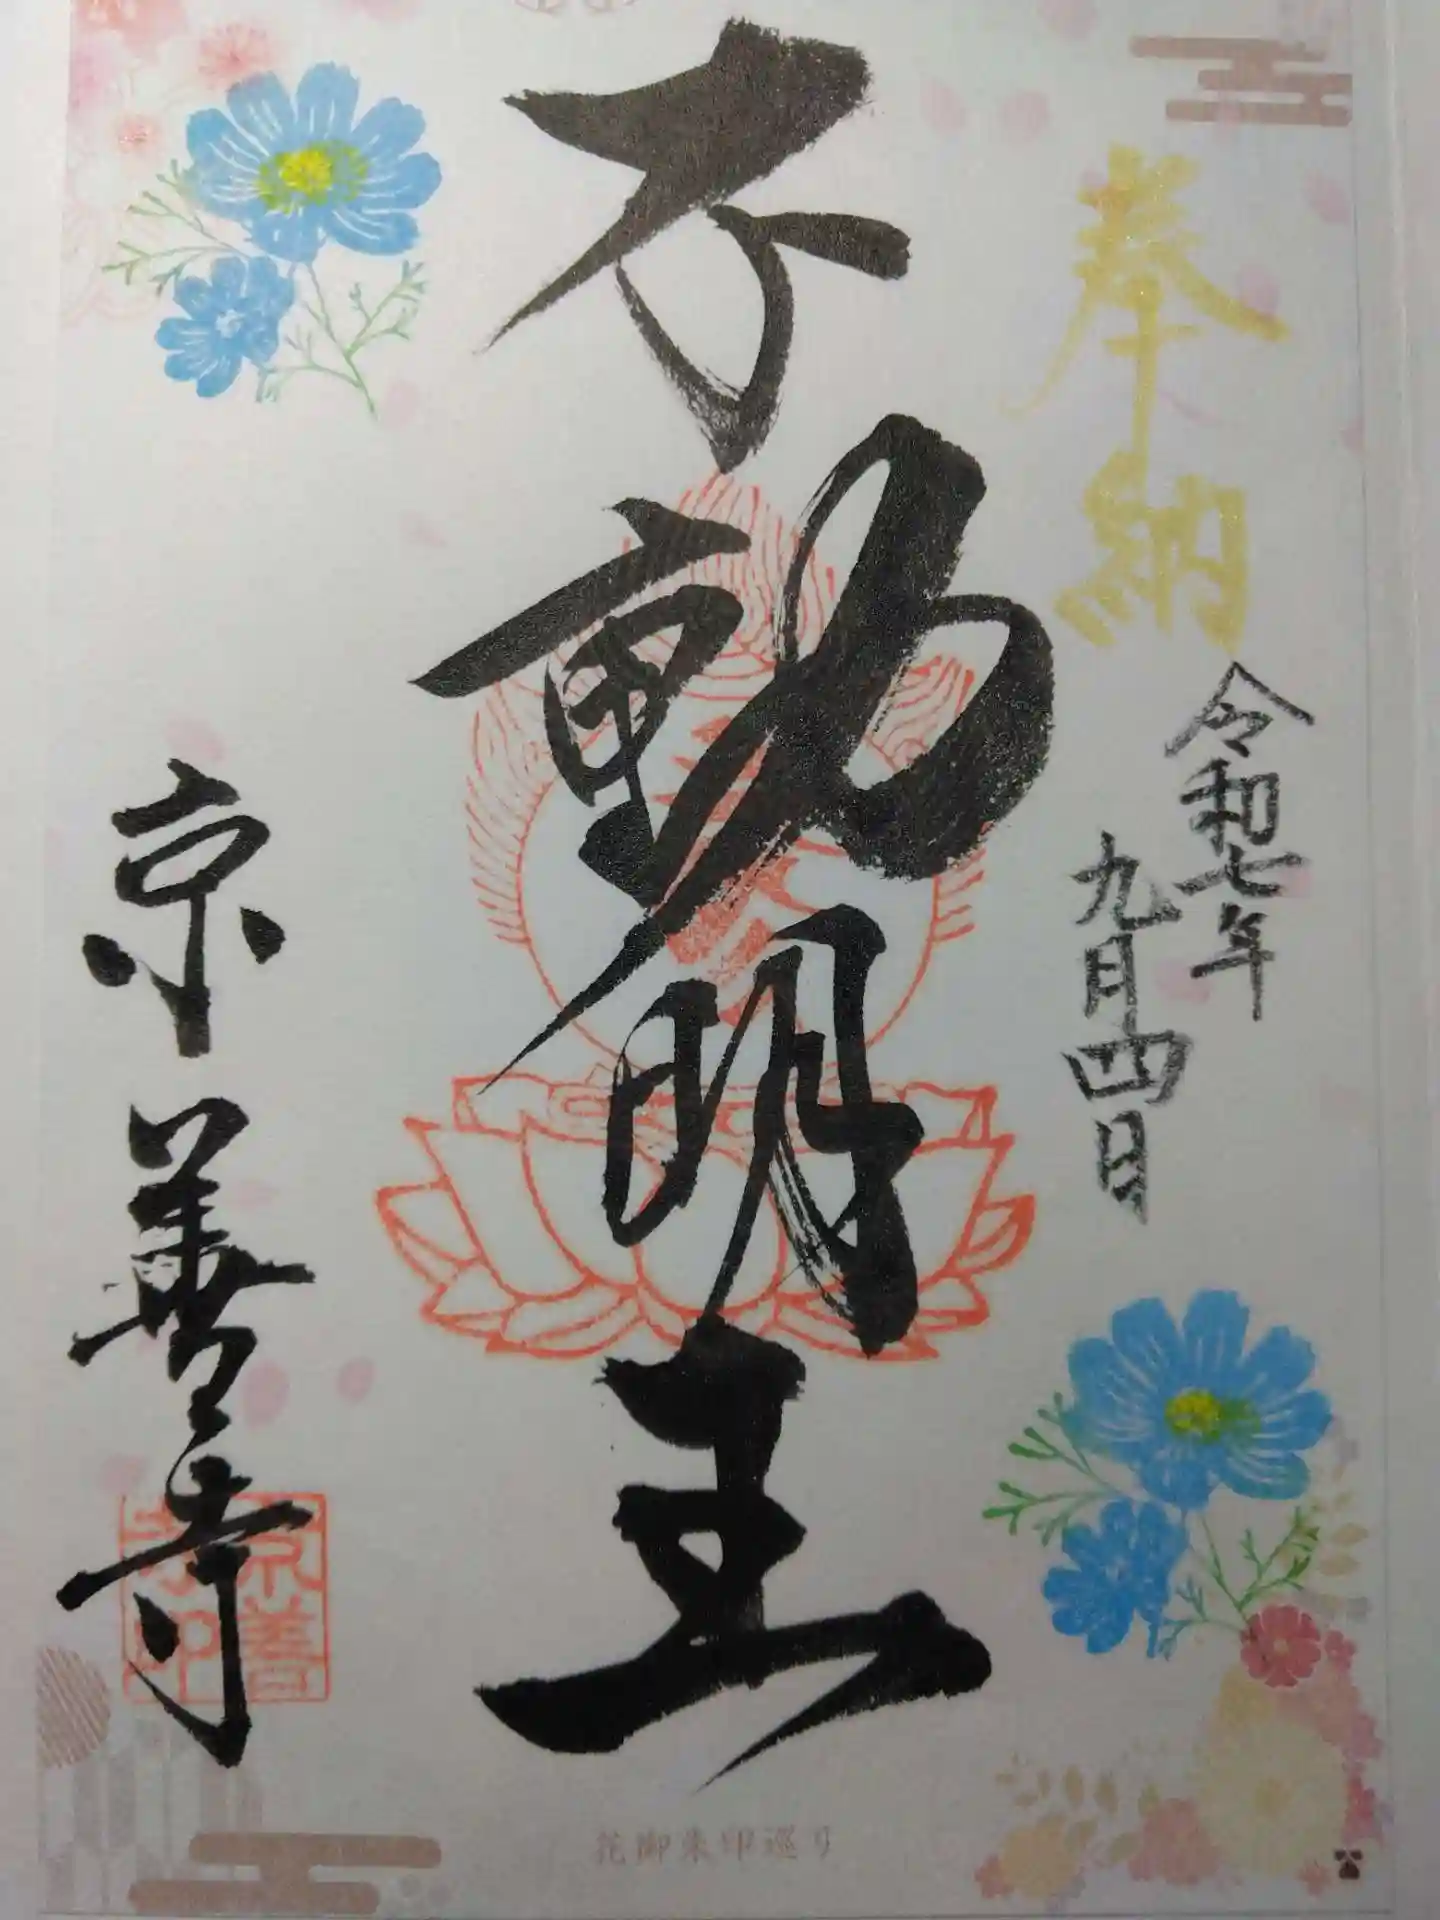 奉納
令和七年
九月四日
不動明王
京善寺
京善
寺印
花御朱印巡り